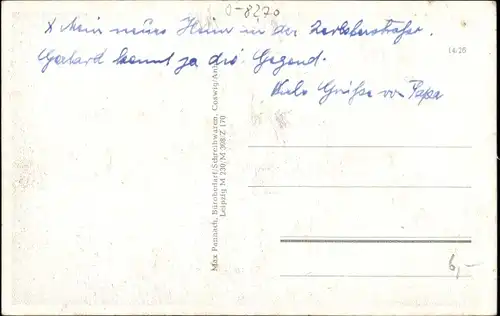 O-8270
x Mein neues Heim in der Zerbsterstraße.
14/26
Gerhard kennt ja die Gegend.
Viele Grüße von Papa
Max Pannach, Bürobedarf/Schreibwaren, Coswig/Anh.
Leipzig M 230/M 308 Z 170
6,-